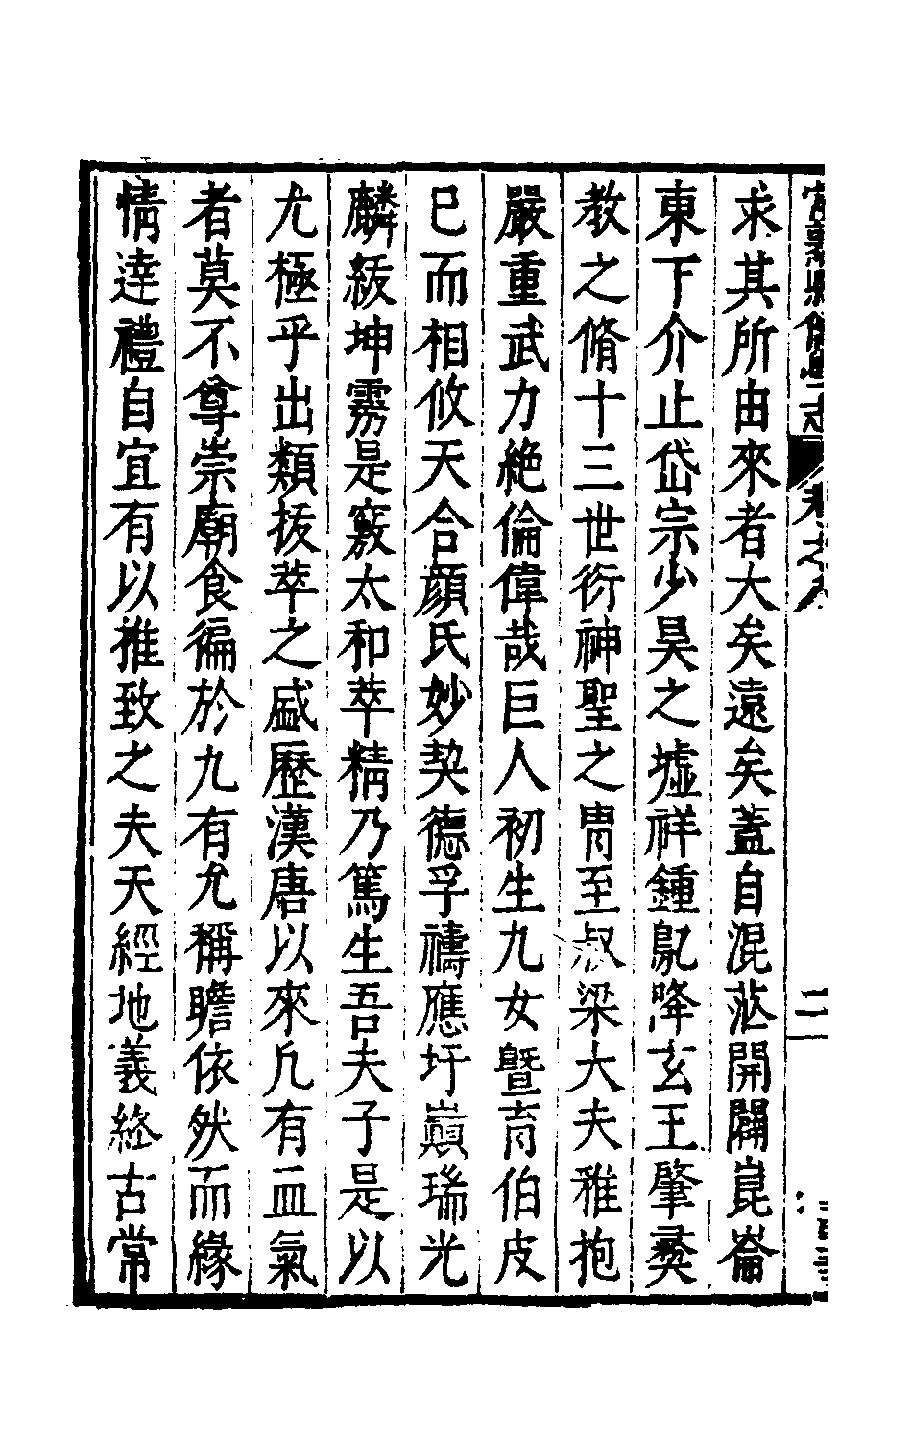 求其所由來者大矣遠矣蓋自混茫開闢崑崙
東下介止岱宗少昊之墟祥鍾鳧峄玄王肇彛
教之脩十三世衍神聖之冑至叔梁大夫雅抱
嚴重武力絶倫偉哉巨人初生九女曁育伯皮
已而相攸天合顔氏妙契德孚禱應圩巔瑞光
麟紱坤靈是竅太和萃精乃篤生吾夫子是以
尢極乎出類拔萃之盛歷漢唐以來凢有血氣
者莫不尊崇廟食徧於九有允稱瞻依然而緣
情達禮自宜有以推致之夫天經地義終古常